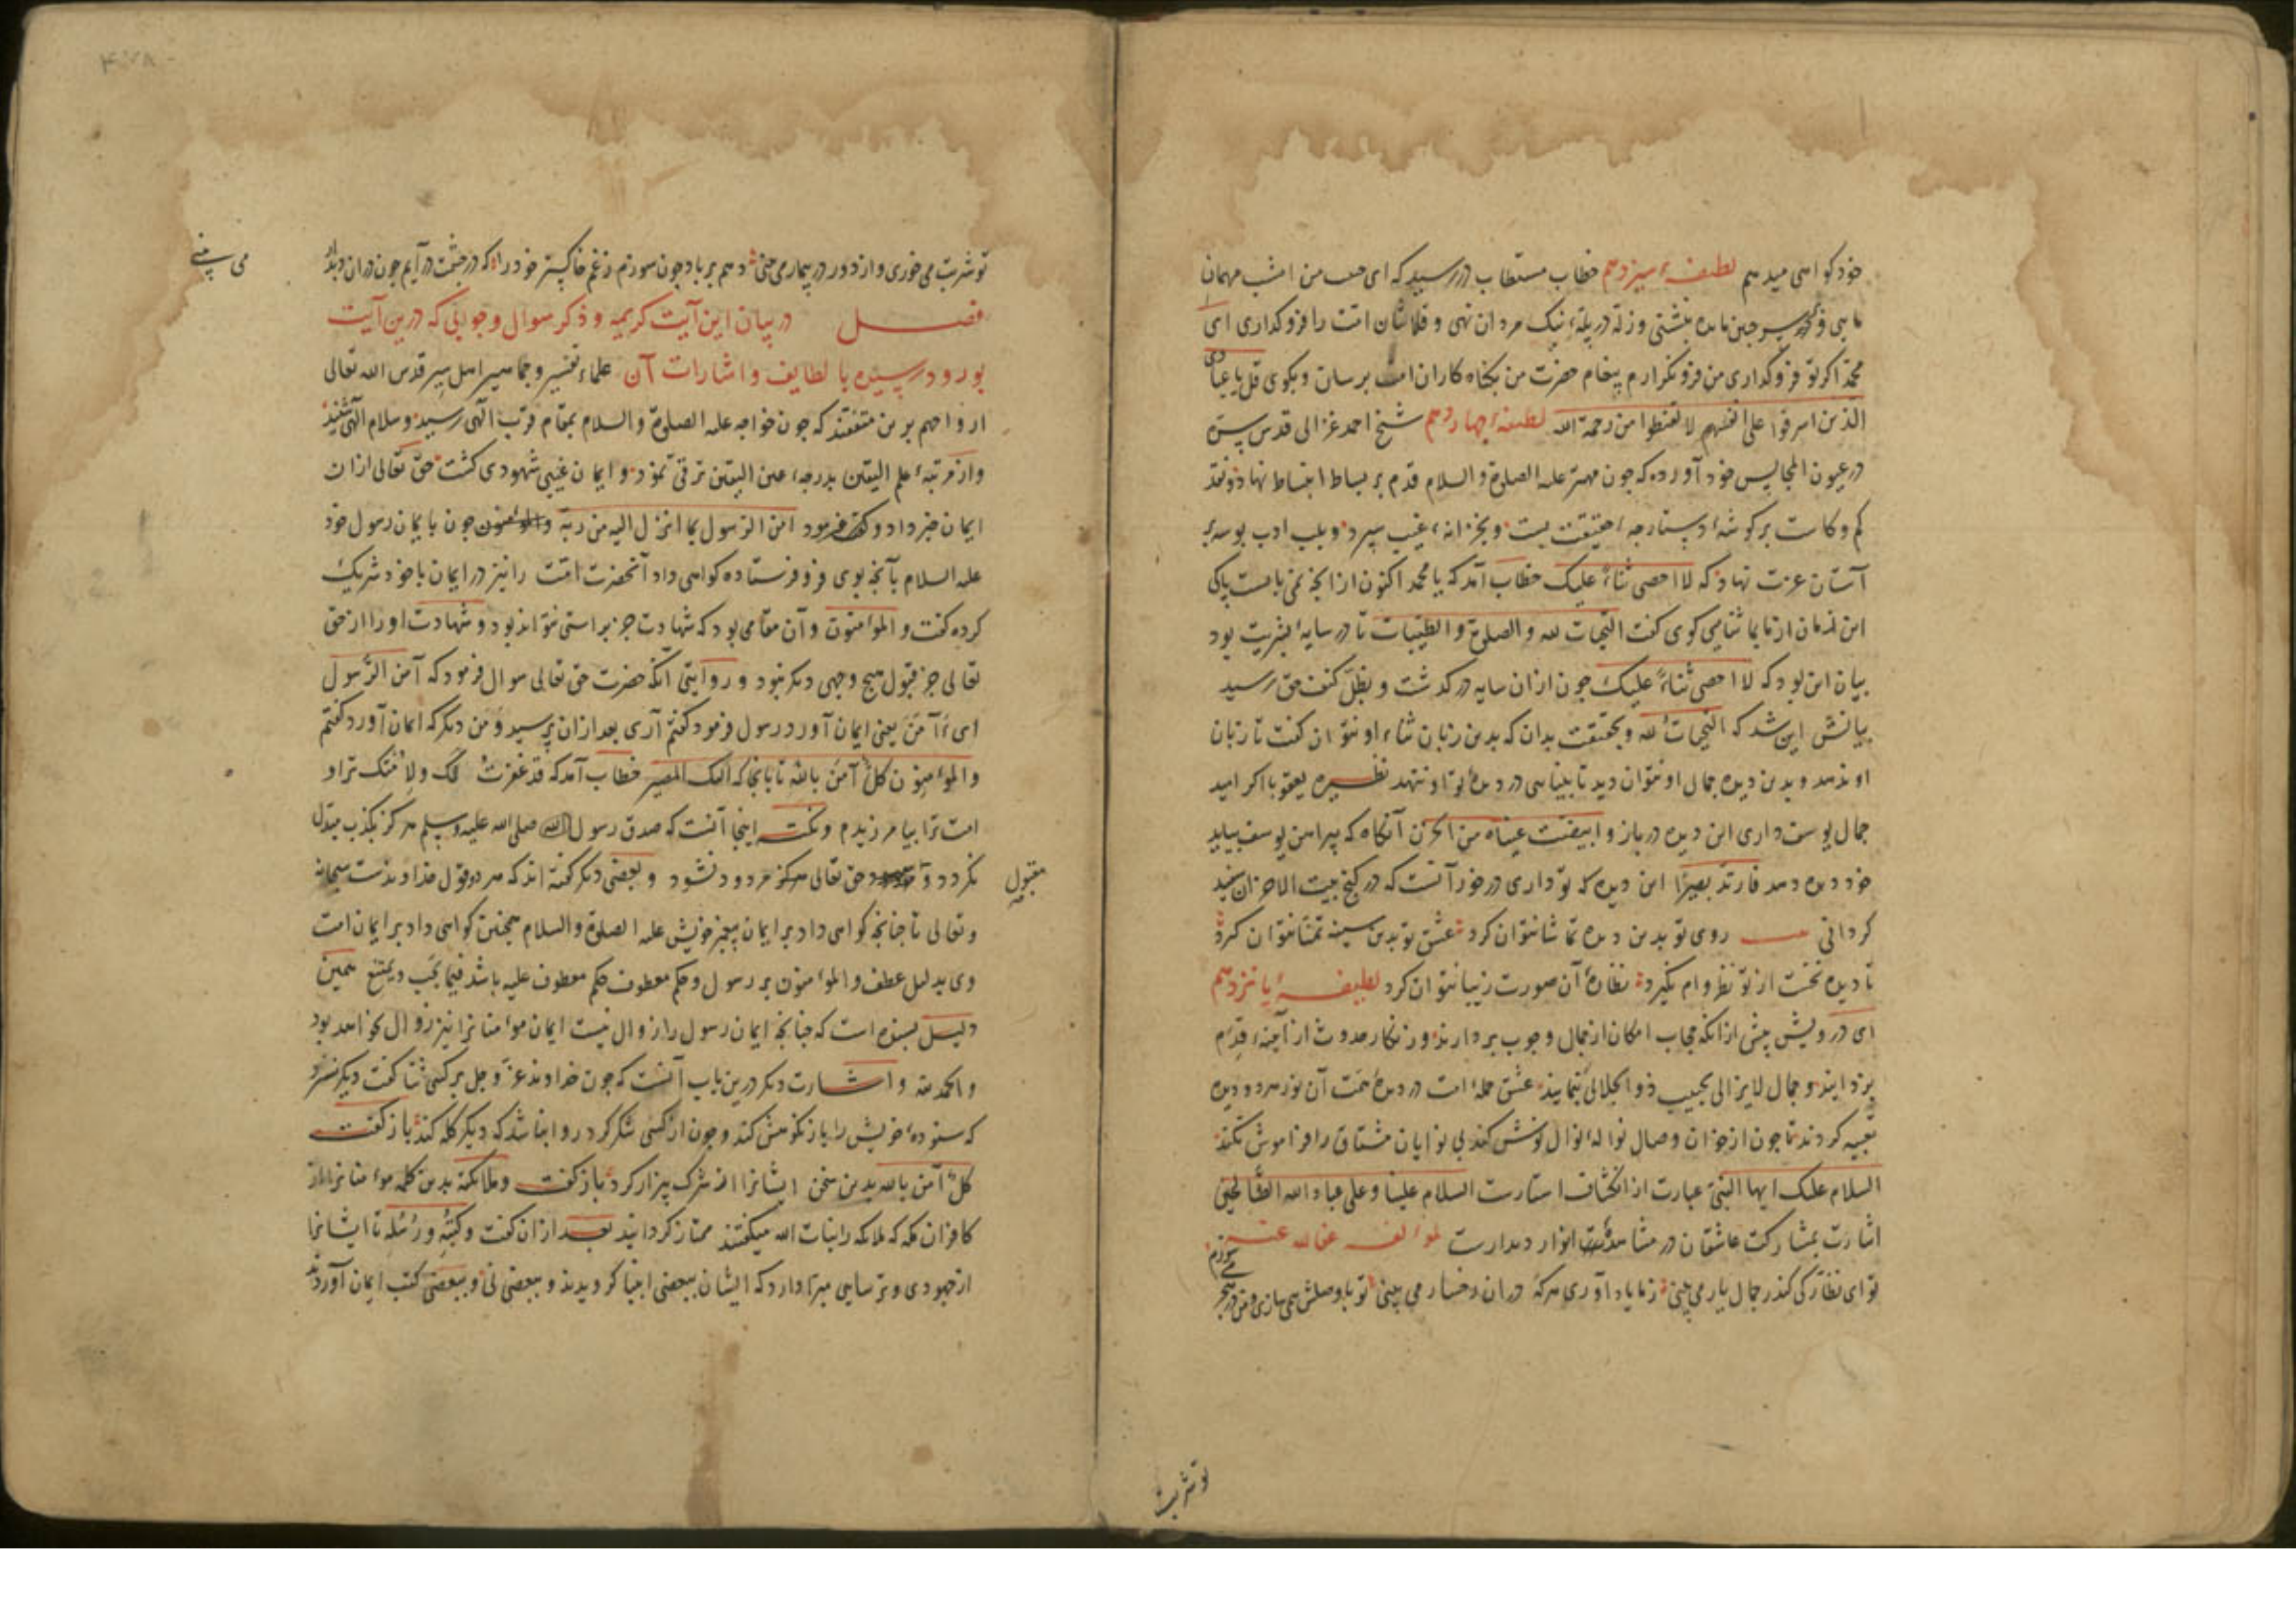 خود کواهی میدهم لطیفهٔ سیزدهم خطاب مستطاب در رسید که ای من امشب مهمان
مایی و بر سر جنین مایده بنشستی و زلّه در پلّهٔ نیک مردان نهی و قلاشان امت را فرو کذاری ای
محمد اکر تو فرو کذاری من فرو نکذارم پیغام حضرت من بکناه کاران امت برسان و بکوی قل یا عبادی
الذین اسرفوا علی انفسهم لا تقنطوا من رحمة الله لطیفهٔ چهاردهم شیخ احمد غزالی قدس سره
در عیون المجالس خود آورده که جون مهتر علیه الصلوة والسلام قدم بر بساط انبساط نهاد و نقد
کم و کاست بر کوشهٔ دستارجه حقیقت بست و بخزانهٔ غیب سپرد و بلب ادب بوسه بر
آستان عزت نهاد که لا احصی ثناءً علیک خطاب آمد که یا محمد اکنون از انجه نمی بایست پاکی
این زمان از ما بما ثنا می کوی کفت التحیات لله والصلوة والطیبات تا در سایهٔ بشریت بود
بیان این بود که لا احصی ثناءً علیک جون ازان سایه در کذشت و بظلّ کنف حق رسید
بیانش این شد که التحیات لله و بحقیقت بدان که بدین زبان ثناء او نتوان کفت تا زبان
او ندهد و بدین دیده جمال او نتوان دید تا بینایی در دیدهٔ تو او ننهد نظیره یعقوبا اکر امید
جمال یوسف داری این دیده در باز و ابیضت عیناه من الحزن آنکاه که پیراهن یوسف بیاید
خود دیده دهد فارتد بصیرًا این دیده که تو داری در خور آنست که در کنج بیت الاحزان سپید
کردانی بیت روی تو بدین دیده تماشا نتوان کرد عشق تو بدین سینه تمنا نتوان کرد
تا دیده نخست از تو نظر وام نکیرد نظارهٔ آن صورت زیبا نتوان کرد لطیفهٔ پانزدهم
ای درویش پیش ازانکه حجاب امکان از جمال وجوب بردارند و زنکار حدوث از آینهٔ قدم
بزدایند و جمال لایزالی بحبیب ذوالجلالی بنمایند عشق جملهٔ امت در دیدهٔ همت آن نور هر دو دیده
تعبیه کردند تا جون از خوان وصال نوالهٔ نوال نوش کند بی نوایان مشتاق را فراموش نکند
السلام علیک ایها النبی عبارت از انکشاف استارست السلام علینا وعلی عباد الله الصالحین
اشارت بمشارکت عاشقان در مشاهدهٔ انوار دیدارست لمؤلفه عفا الله عنه
تو ای نظارکی کندر جمال یار می بینی ز ما یاد آوری هرکه دران رخسار می بینی تو با وصلش همی سازی و من در هجر
می سوزم
تو شربت
تو شربت می خوری و از دور در بیمار می بینی دهم بر باد جون سوزم ز غم خاکستر خود را که در جشمت در آیم جون دران دیدار
می بینی
فصل در بیان این آیت کریمه و ذکر سوال و جوابی که درین آیت
بود و در رسیده با لطایف و اشارات آن علماء تفسیر و جماهیر اهل سیر قدس الله تعالی
ارواحهم برین متفقند که جون خواجه علیه الصلوة والسلام بمقام قرب الهی رسید و سلام الهی شنید
و از مرتبهٔ علم الیقین بدرجهٔ عین الیقین ترقی نمود و ایمان غیبی شهودی کشت حق تعالی ازان
ایمان خبر داد و فرمود امن الرسول بما انزل الیه من ربه والمؤمنون جون بایمان رسول خود
علیه السلام بآنجه بوی فرو فرستاده کواهی داد آنحضرت امت را نیز در ایمان با خود شریک
کرده کفت والمؤمنون و آن مقامی بود که شهادت جز براستی نتواند بود و شهادت او را از حق
تعالی جز قبول هیچ وجهی دیکر نبود و روایتی آنکه حضرت حق تعالی سوال فرمود که آمن الرسول
ای ءَآمَنَ یعنی ایمان آورد رسول فرمود کفتم آری بعد ازان پرسید وَمَن دیکر که ایمان آورد کفتم
والمؤمنون کلٌّ آمن بالله تا بانجا که الیک المصیر خطاب آمد که قد غفرت لک ولامتک ترا و
امت ترا بیامرزیدم و نکته اینجا آنست که صدق رسول الله صلی الله علیه وسلم هرکز بکذب مبدل
نکردد و حق تعالی هرکز مردود نشود و بعضی دیکر کفته اند که هر دو قول خداوندست سبحانه
مقبول
و تعالی تا جنانجه کواهی داد بر ایمان پیغمبر خویش علیه الصلوة والسلام همجنین کواهی داد بر ایمان امت
وی بدلیل عطف والمؤمنون بر رسول و حکم معطوف حکم معطوف علیه باشد فیما یجب و یمتنع همین
دلیل بسنده است که جنانجه ایمان رسول را زوال نیست ایمان مؤمنانرا نیز زوال نخواهد بود
والحمد لله و اشارت دیکر درین باب آنست که جون خداوند عز وجل بر کسی ثنا کفت دیکر نسزد
که ستودهٔ خویش را باز نکوهش کند و جون از کسی شکر کرد روا نباشد که دیکر کله کند باز کفت
کلٌّ آمن بالله بدین سخن ایشانرا از شرک بیزار کرد باز کفت وملائکته بدین کلمه مؤمنانرا از
کافران مکه که ملائکه را بنات الله میکفتند ممتاز کردانید بعد ازان کفت وکتبه ورسله تا ایشانرا
از جهودی و ترسایی مبرّا دارد که ایشان ببعضی انبیا کرویدند و ببعضی نی و ببعضی کتب ایمان آوردند